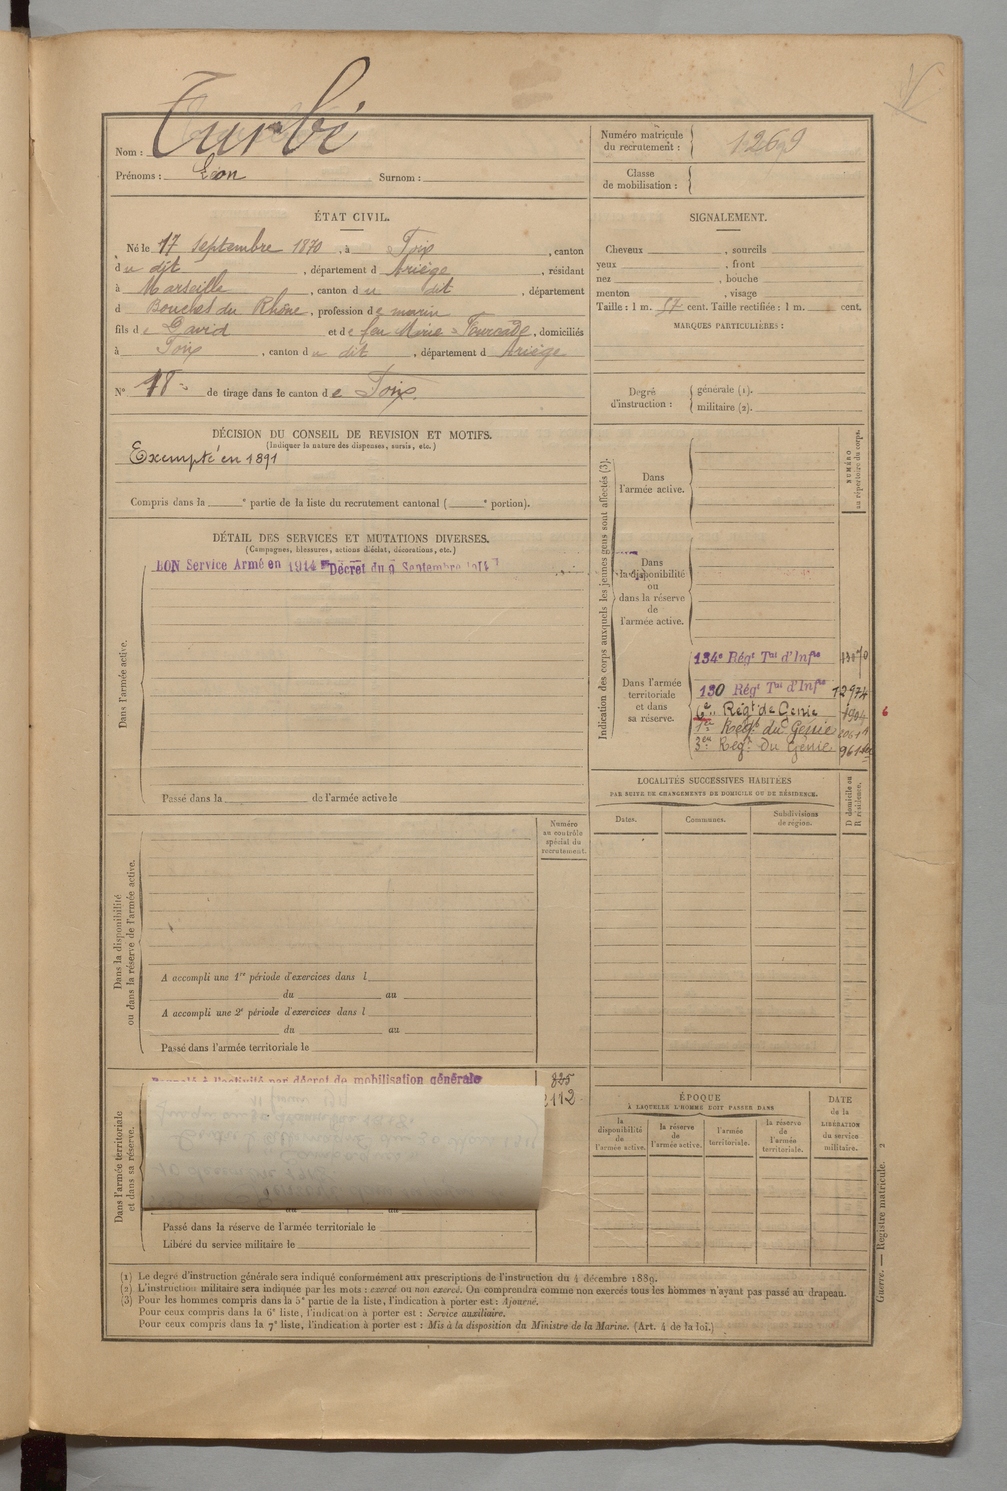 Turbé
Nom :
Prénoms : Léon Surnom :
Numéro matricule
du recrutement : 1269
Classe
de mobilisation :
ÉTAT CIVIL.
Né le 17 septembre 1870, à Foix, canton
du dit, département d Ariège, résidant
à Marseille, canton du dit, département
d Bouches du Rhône, profession de marin
fils de David et de feu Marie Fourcade, domiciliés
à Foix, canton du dit, département d Ariège
N° 18 de tirage dans le canton de Foix.
SIGNALEMENT.
Cheveux , sourcils
yeux , front
nez , bouche
menton , visage
Taille : 1 m. 57 cent. Taille rectifiée : 1 m. cent.
MARQUES PARTICULIÈRES :
Degré
d'instruction :
générale (1).
militaire (2).
DÉCISION DU CONSEIL DE REVISION ET MOTIFS.
(Indiquer la nature des dispenses, sursis, etc.)
Exempté en 1891
Compris dans la e partie de la liste du recrutement cantonal ( e portion).
DÉTAIL DES SERVICES ET MUTATIONS DIVERSES.
(Campagnes, blessures, actions d'éclat, décorations, etc.)
BON Service Armé en 1914 Décret du 9 Septembre 1914
Dans l'armée active.
Passé dans la de l'armée active le
Indication des corps auxquels les jeunes gens sont affectés (3).
NUMÉRO
au répertoire du corps.
Dans
l'armée active.
Dans
la disponibilité
ou
dans la réserve
de
l'armée active.
Dans l'armée
territoriale
et dans
sa réserve.
134e Régt Tal d'Infie
130 Régt Tal d'Infie 12974
6e Régt de Génie 1904 6
7e Régt du Génie
3e Régt Du Génie
LOCALITÉS SUCCESSIVES HABITÉES
PAR SUITE DE CHANGEMENTS DE DOMICILE OU DE RÉSIDENCE.
D domicile ou
R résidence.
Dates.
Communes.
Subdivisions
de région.
Numéro
au contrôle
spécial du
recrutement.
Dans la disponibilité
ou dans la réserve de l'armée active.
A accompli une 1re période d'exercices dans l
du au
A accompli une 2e période d'exercices dans l
du au
Passé dans l'armée territoriale le
Rappelé à l'activité par décret de mobilisation générale
825
2112
Dans l'armée territoriale
et dans sa réserve.
du au
Passé dans la réserve de l'armée territoriale le
Libéré du service militaire le
ÉPOQUE
À LAQUELLE L'HOMME DOIT PASSER DANS
la
disponibilité
de
l'armée active.
la réserve
de
l'armée active.
l'armée
territoriale.
la réserve
de
l'armée
territoriale.
DATE
de la
LIBÉRATION
du service
militaire.
(1) Le degré d'instruction générale sera indiqué conformément aux prescriptions de l'instruction du 4 décembre 1889.
(2) L'instruction militaire sera indiquée par les mots : exercé ou non exercé. On comprendra comme non exercés tous les hommes n'ayant pas passé au drapeau.
(3) Pour les hommes compris dans la 5e partie de la liste, l'indication à porter est : Ajourné.
Pour ceux compris dans la 6e liste, l'indication à porter est : Service auxiliaire.
Pour ceux compris dans la 7e liste, l'indication à porter est : Mis à la disposition du Ministre de la Marine. (Art. 4 de la loi.)
Guerre. — Registre matricule. 2